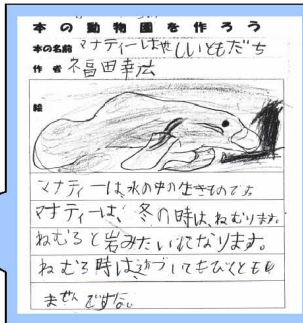 本の動物園を作ろう
本の名前 マナティーはやさしいともだち
作者 福田幸広
絵
マナティーは、水の中の生きものです。
マナティーは、冬の時は、ねむります。
ねむると岩みたいになります。
ねむる時は近づいてもびくとも
ません